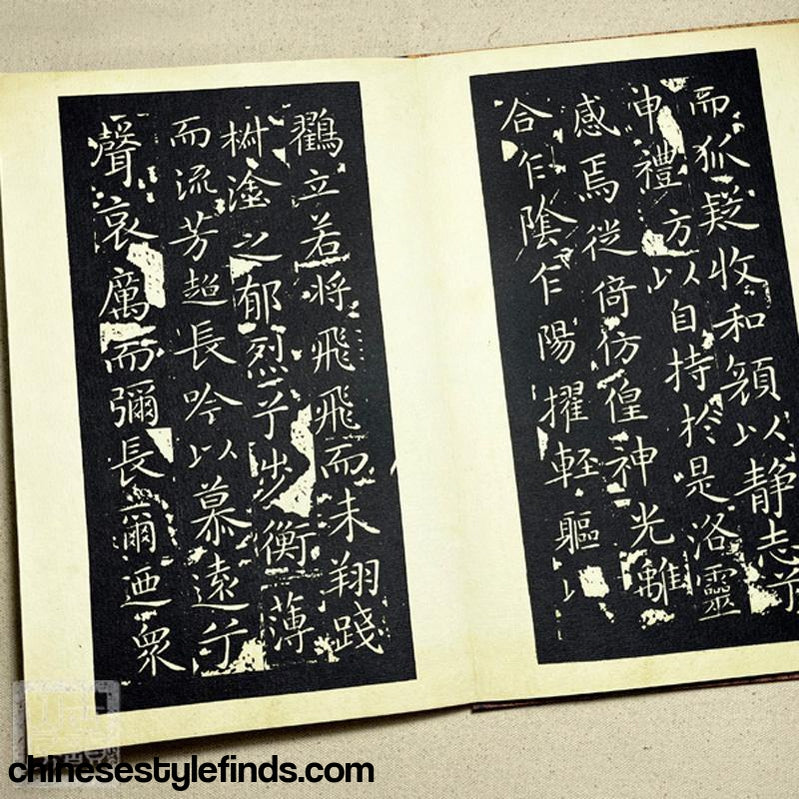 而狐疑收和顏以静志兮
申禮方以自持於是洛靈
感焉徙倚仿偟神光離
合乍陰乍陽擢輕軀以
鸖立若將飛飛而未翔踐
椒塗之郁烈步衡薄
而流芳超長吟以慕遠兮
聲哀厲而彌長爾迺衆
chinesestylefinds.com